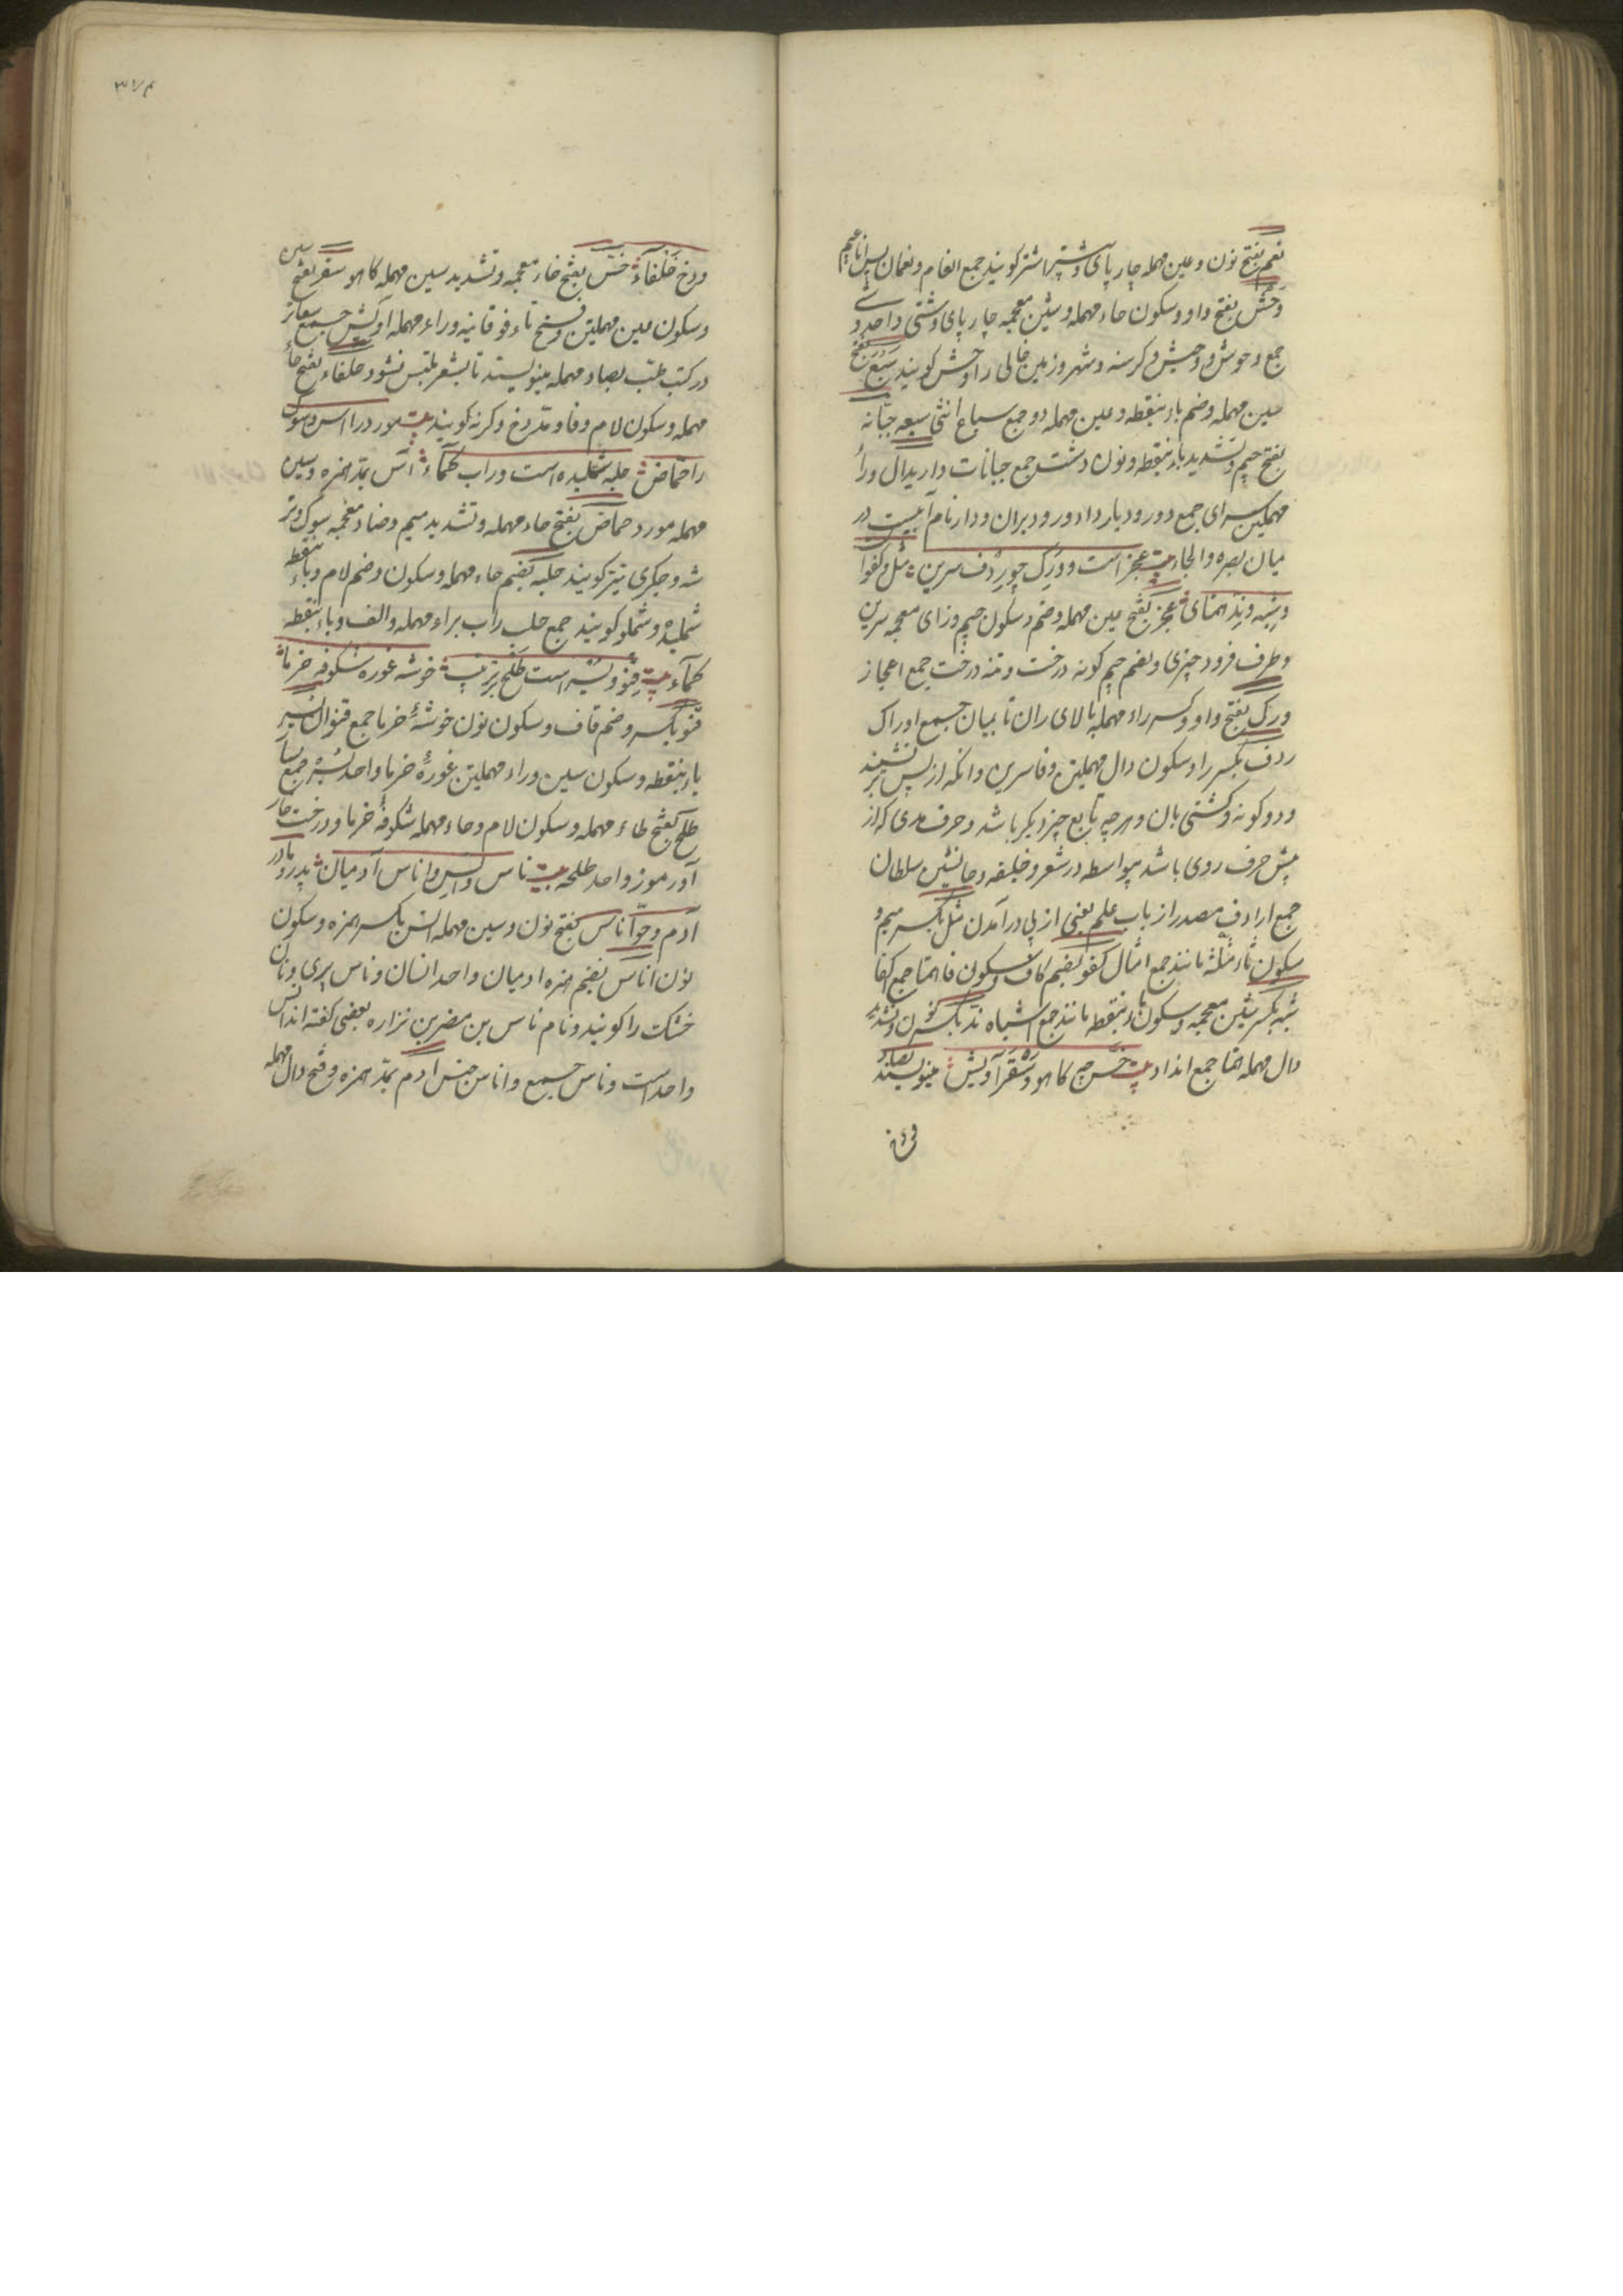 نعم بفتح نون و عین مهمله چار پای و بیشتر اشتر کویند جمع انعام و نعمان پس اناعیم
وحش بفتح واو و سکون حاء مهمله و شین معجمه چار پای دشتی واحد وحشی
جمع وحوش و وحیش و کرسنه و شهر و زمین خالی را وحش کویند سبع بفتح
سین مهمله و ضم باء بنقطه و عین مهمله دد جمع سباع انثی سبعه جبانه
بفتح جیم و تشدید باء بنقطه و نون دشت جمع جبانات دار بدال و راء
مهملتین سرای جمع دور و دیار و ادور و دیران و دار نام آبیست در
میان بصره و الحاء عجز است و ورک چو ردف سرین مثل و کفو
و شبه و ند همتای عجز بفتح عین مهمله و ضم و سکون جیم و زای معجمه سرین
و طرف فرود چیزی و بضم جیم کونه درخت و تنه درخت جمع اعجاز
ورک بفتح واو و کسر راء مهمله بالای ران تا بمیان جمع اوراک
ردف بکسر را و سکون دال مهملتین و فا سرین و انکه از پس بر نشیند
و دو کونه کشتی بان و هر چه تابع چیز دیکر باشد و حرف مدی که از
پیش حرف روی باشد بیواسطه در شعر و خلیفه و جانشین سلطان
جمع ارادف مصدر از باب علم یعنی از پی درآمدن مثل بکسر میم و
سکون ثاء مثلثه مانند جمع امثال کفو بضم کاف و سکون فا همتا جمع اکفا
شبه بکسر شین معجمه و سکون باء بنقطه مانند جمع اشباه ند بکسر نون و تشدید
دال مهمله همتا جمع انداد خس چه کاهو و سعتر آویش مینویسند بصاد
ورخ حلفاء خس بفتح خاء معجمه و تشدید سین مهمله کاهو سعتر بفتح سین
و سکون عین مهملتین و فتح تاء فوقانیه و راء مهمله اویش جمع سعاتر
در کتب طب بصاد مهمله مینویسند تا بشعر ملتبس نشود حلفاء بفتح حاء
مهمله و سکون لام و فا و مد رخ و کرنه کویند مورد را اس و سوک
را حماض حلبه شملیده است و راب کماء آس بمد همزه و سین
مهمله مورد حماض بفتح حاء مهمله و تشدید میم و ضاد معجمه سوک و تر
شه و چکری نیز کویند حلبه بضم حاء مهمله و سکون و ضم لام و باء بنقطه
شملیده و شملو کویند جمع حلب راب براء مهمله و الف و باء بنقطه
کماء قنو و بسر است طلح بترتیب خوشه غوره شکوفه خرما
قنو بکسر و ضم قاف و سکون نون خوشه خرما جمع قنوان بسر
باء بنقطه و سکون سین و راء مهملتین غوره خرما واحد بسره جمع بسار
طلح بفتح طاء مهمله و سکون لام و حاء مهمله شکوفه خرما و درخت خار
آور موز واحد طلحه ناس و انس و اناس آدمیان پدر و مادر
آدم و حوا ناس بفتح نون و سین مهمله انس بکسر همزه و سکون
نون اناس بضم همزه ادمیان واحد انسان و ناس پری و نان
خشک را کویند و نام ناس بن مضر بن نزار بعضی کفته اند انس
واحد است و ناس جمع و اناس جنس ادم بمد همزه و فتح دال مهمله